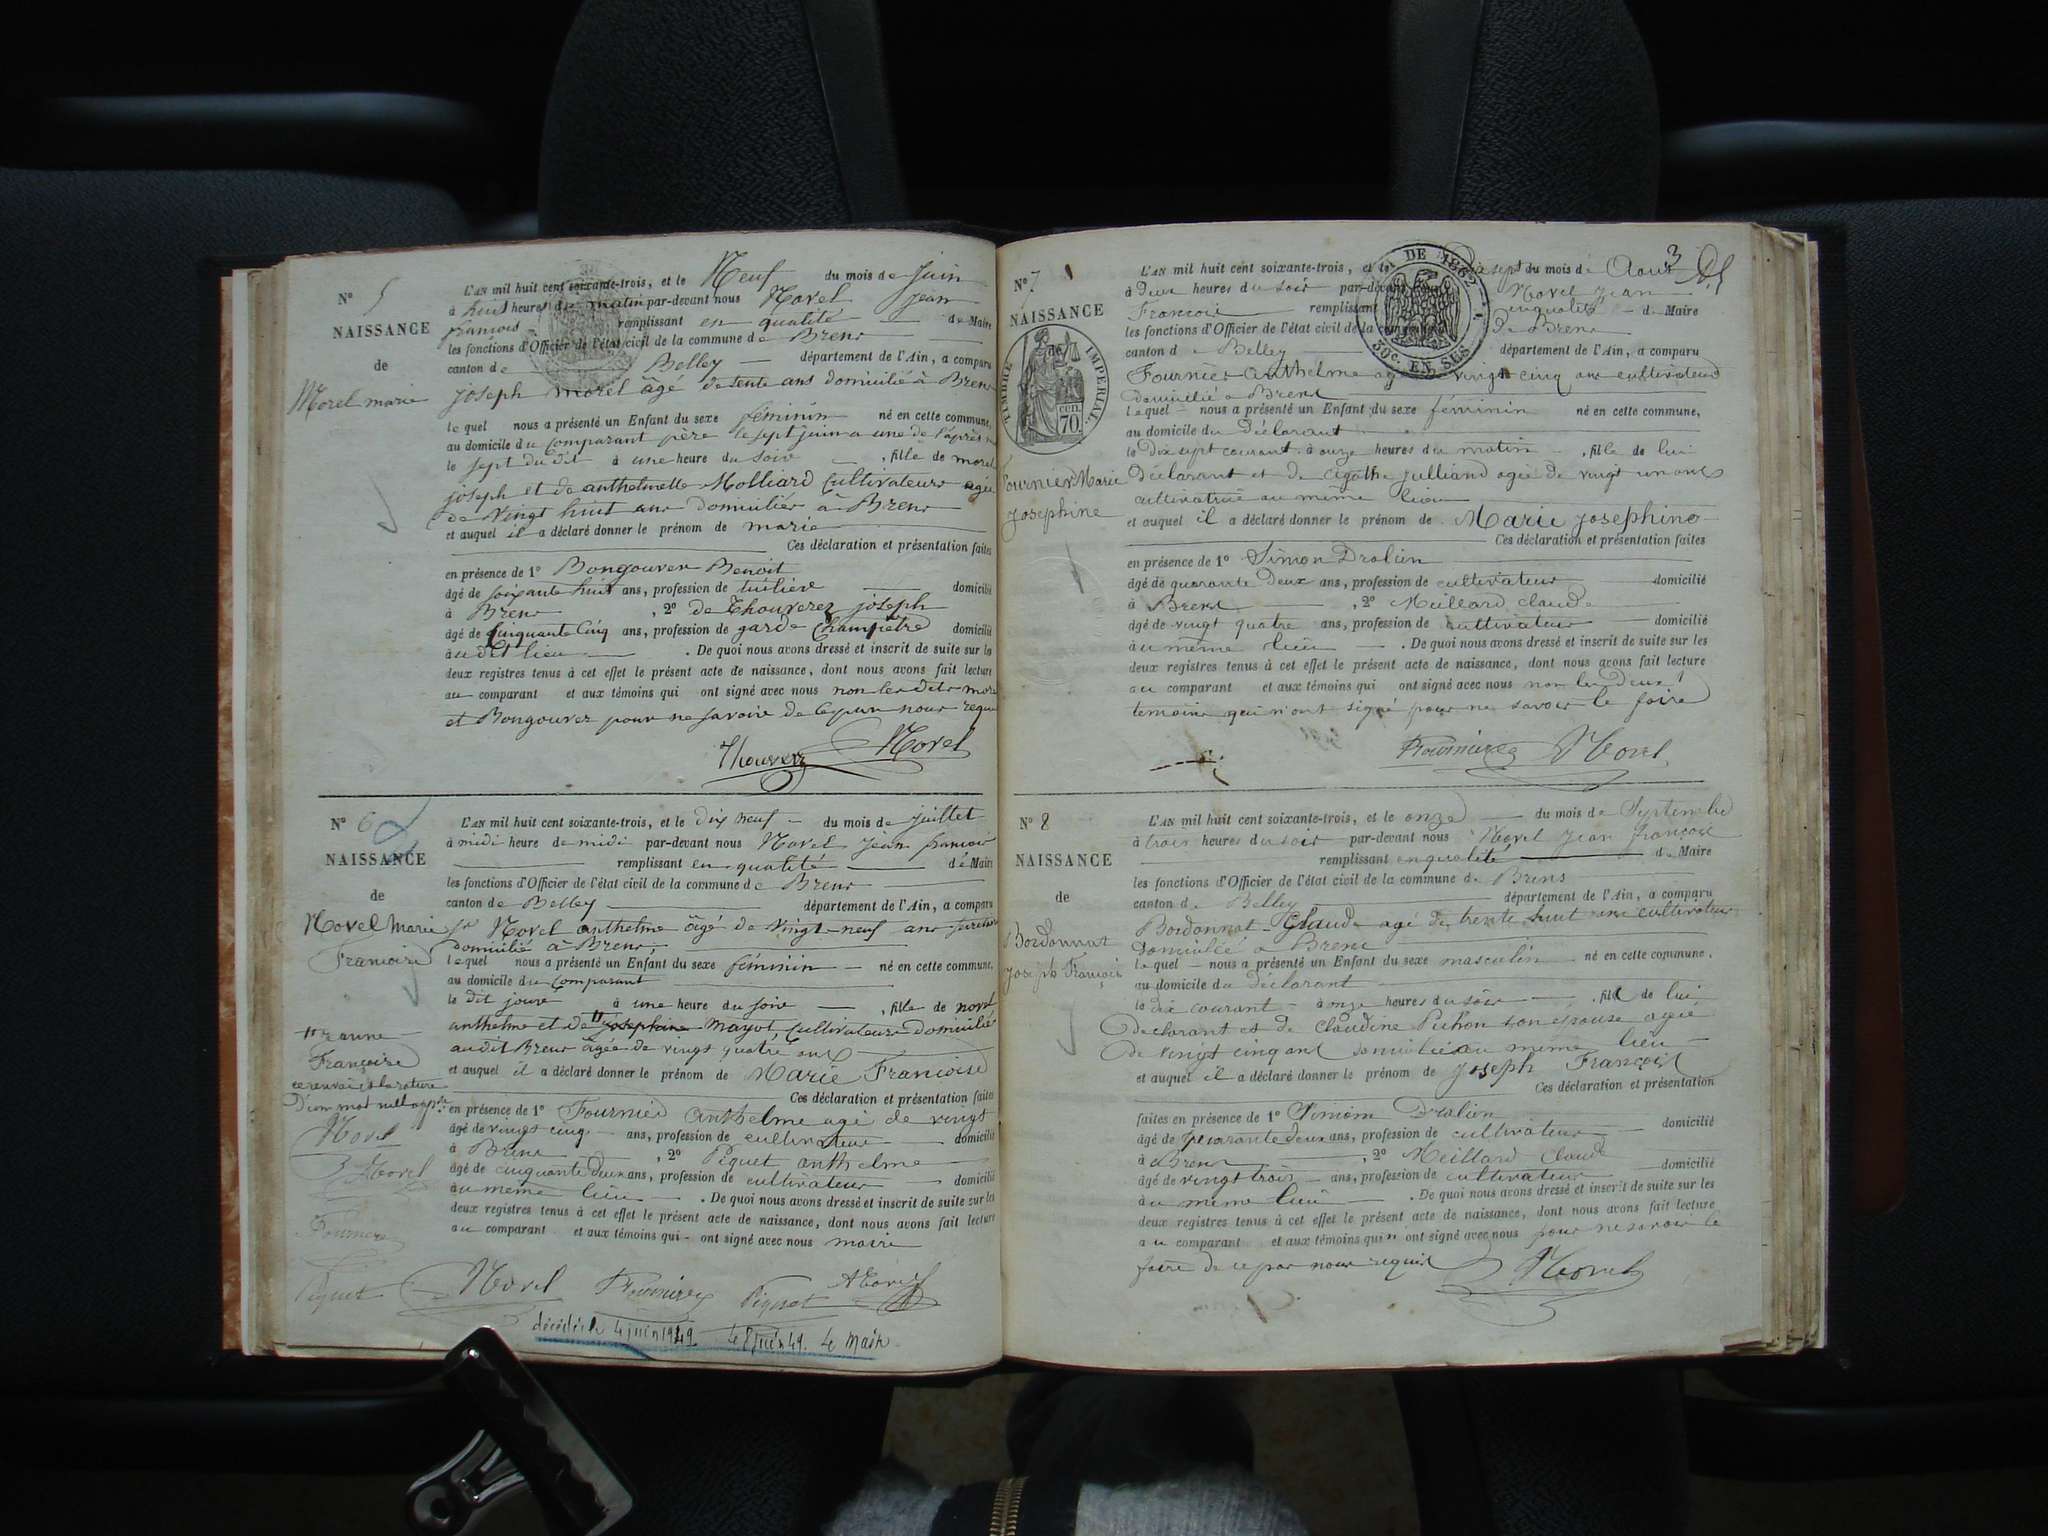 N° 5
NAISSANCE
de
Morel marie
L'AN mil huit cent soixante-trois, et le Neuf du mois de Juin
à huit heures du matin par-devant nous Hovel jean
françois remplissant en qualité de Maire
les fonctions d'Officier de l'état civil de la commune de Brens
canton de Belley département de l'Ain, a comparu
joseph morel âgé de tente ans domicilié à Brens
lequel nous a présenté un Enfant du sexe féminin né en cette commune,
au domicile du comparant père le sept juin a une de l'après
le sept du dit à une heure du soire , fille de morel
joseph et de anthelmette Molliard cultivateurs agée
de vingt huit ans domiciliés à Brens
et auquel il a déclaré donner le prénom de marie
Ces déclaration et présentation faites
en présence de 1° Bongouver Benoit
âgé de soixante huit ans, profession de tuiliere domicilié
à Brens , 2° de Thouverez joseph
âgé de Cinquante Cinq ans, profession de garde Champetre domicilié
au dit lieu . De quoi nous avons dressé et inscrit de suite sur les
deux registres tenus à cet effet le présent acte de naissance, dont nous avons fait lecture
au comparant et aux témoins qui ont signé avec nous non les dits mor
et Bongouvez pour ne savoire de ce par nous requi
Thouverez Hovel
N° 6
NAISSANCE
de
Hovel Marie
Francoise
jeanne
Françoise
Hovel
Hovel
Fournier
Piquet
L'AN mil huit cent soixante-trois, et le dix neuf du mois de juillet
à midi heure de midi par-devant nous Hovel jean francois
remplissant en qualité de Maire
les fonctions d'Officier de l'état civil de la commune de Brens
canton de Belley département de l'Ain, a comparu
Sr Hovel anthelme âgé de vingt-neuf ans
domicilié à Brens
lequel nous a présenté un Enfant du sexe féminin né en cette commune,
au domicile du comparant
le dit jour à une heure du soire , fille de novel
anthelme et de josephine mayot, cultivateurs domiciliés
audit Brens âgée de vingt quatre ans
et auquel il a déclaré donner le prénom de Marie Francoise
Ces déclaration et présentation faites
en présence de 1° Fournier anthelme agé de vingt
âgé de vingt cinq ans, profession de cultivateur domicilié
à Brens , 2° Piquet anthelme
âgé de cinquante deux ans, profession de cultivateur domicilié
au même lieu . De quoi nous avons dressé et inscrit de suite sur les
deux registres tenus à cet effet le présent acte de naissance, dont nous avons fait lecture
au comparant et aux témoins qui ont signé avec nous maire
Hovel Fournier Piquet AHovel
décédée le 4 juin 1942 Le Maire
3
N° 7
NAISSANCE
de
TIMBRE IMPERIAL
70 cen.
Fournier Marie
josephine
DE 1862
50c. EN SUS
L'AN mil huit cent soixante-trois, et le dix sept du mois de Aout
à Deux heures du soir par-devant nous Hovel jean
Francois remplissant en qualité de Maire
les fonctions d'Officier de l'état civil de la commune de Brens
canton de Belley département de l'Ain, a comparu
Fournier anthelme agé de vingt cinq ans cultivateur
domicilié a Brens
lequel nous a présenté un Enfant du sexe féminin né en cette commune,
au domicile du Déclarant
le Dix sept courant à onze heures du matin , fille de lui
Déclarant et de Agathe julliand agée de vingt un ans
cultivatrice au même lieu
et auquel il a déclaré donner le prénom de Marie josephine
Ces déclaration et présentation faites
en présence de 1° Simon Dralin
âgé de quarante deux ans, profession de cultivateur domicilié
à Brens , 2° Meillard claude
âgé de vingt quatre ans, profession de cultivateur domicilié
au même lieu . De quoi nous avons dressé et inscrit de suite sur les
deux registres tenus à cet effet le présent acte de naissance, dont nous avons fait lecture
au comparant et aux témoins qui ont signé avec nous non les deux
temoins qui n'ont signé pour ne savoir le faire
Fournier Hovel
N° 8
NAISSANCE
de
Bordonnat
joseph François
L'AN mil huit cent soixante-trois, et le onze du mois de Septembre
à trois heures du soir par-devant nous Hovel jean françois
remplissant en qualité de Maire
les fonctions d'Officier de l'état civil de la commune de Brens
canton de Belley département de l'Ain, a comparu
Bordonnat Claude agé de trente huit ans cultivateur
domicilié a Brens
lequel nous a présenté un Enfant du sexe masculin né en cette commune,
au domicile du déclarant
le dix courant à onze heures du soir , fils de lui
declarant et de claudine Pichon son epouse agée
de vingt cinq ans domiciliée au même lieu
et auquel il a déclaré donner le prénom de joseph François
Ces déclaration et présentation
faites en présence de 1° Simon Dralin
âgé de quarante deux ans, profession de cultivateur domicilié
à Brens , 2° Meillard Claude
âgé de vingt trois ans, profession de cultivateur domicilié
au meme lieu . De quoi nous avons dressé et inscrit de suite sur les
deux registres tenus à cet effet le présent acte de naissance, dont nous avons fait lecture
au comparant et aux témoins qui n'ont signé avec nous pour ne savoir le
faire de ce par nous requis Hovel